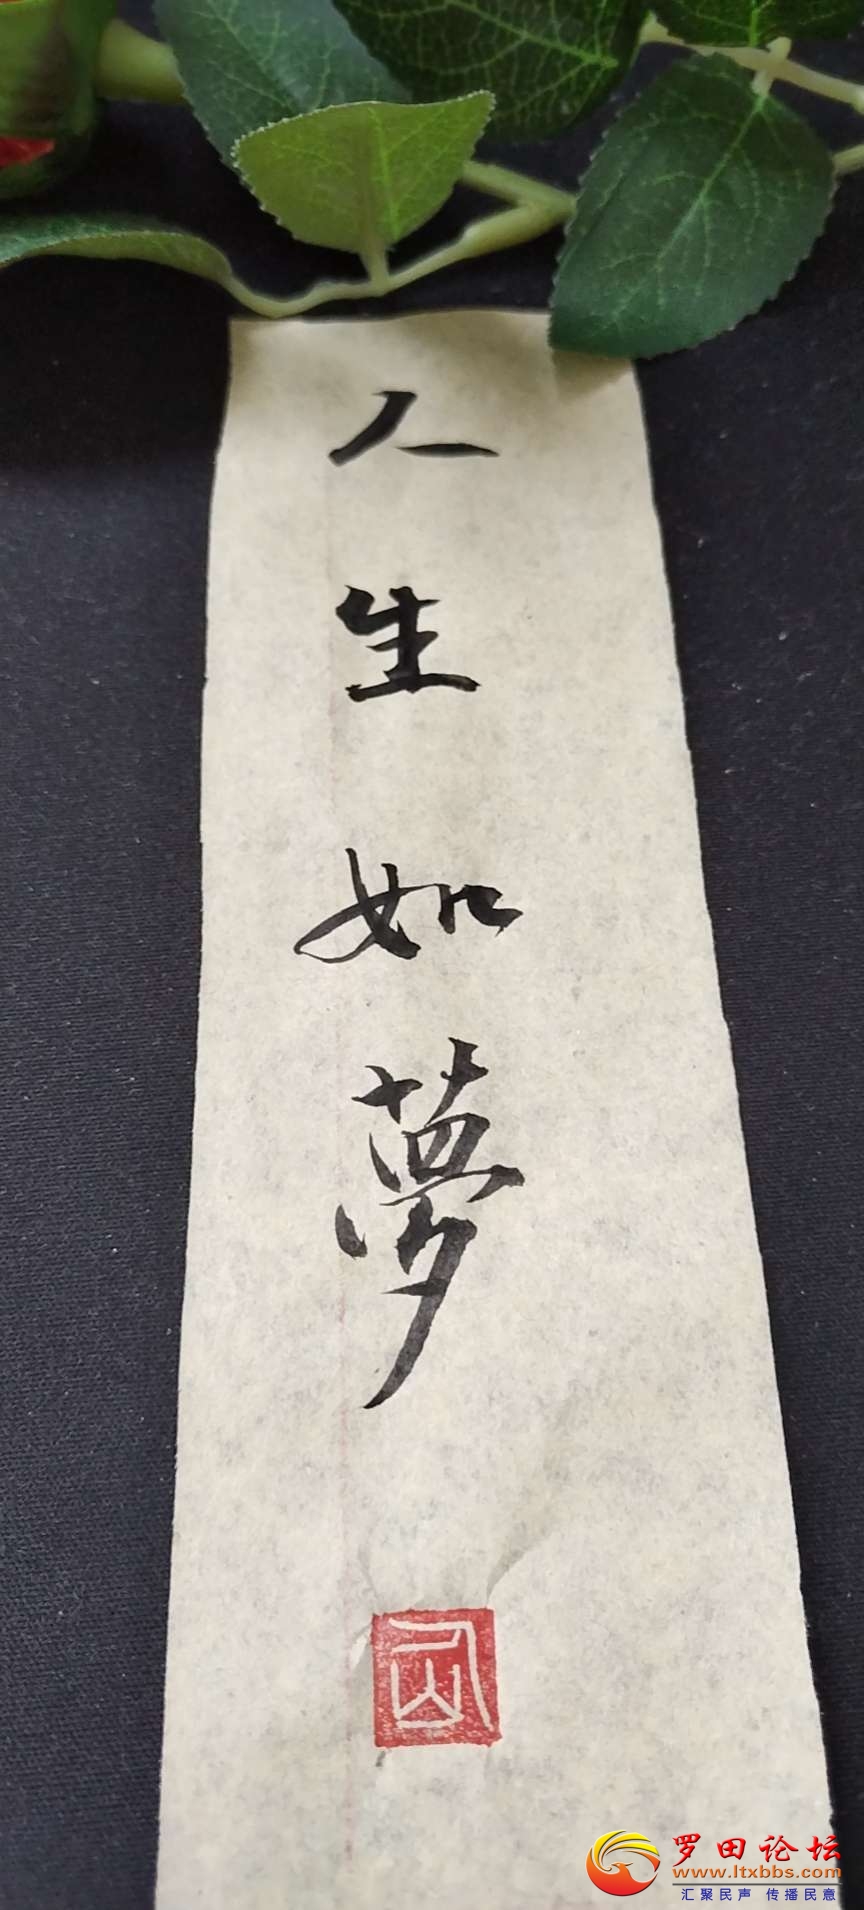 人生如夢
罗田论坛
www.ltxbbs.com
汇聚民声 传播民意